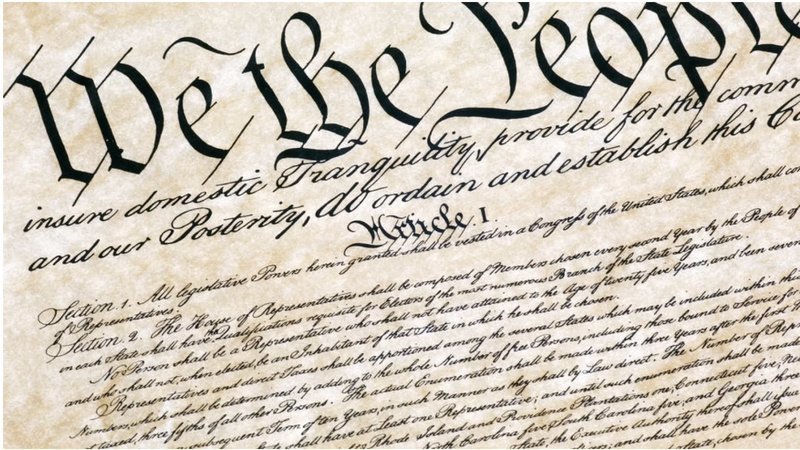 We the People
insure domestic Tranquility, provide for the comm
and our Posterity, do ordain and establish this Co
Article. I.
Section. 1. All legislative Powers herein granted shall be vested in a Congress of the United States, which shall con
of Representatives.
Section. 2. The House of Representatives shall be composed of Members chosen every second Year by the People of
in each State shall have the Qualifications requisite for Electors of the most numerous Branch of the State Legislature.
No Person shall be a Representative who shall not have attained to the Age of twenty five Years, and been seven
and who shall not, when elected, be an Inhabitant of that State in which he shall be chosen.
Representatives and direct Taxes shall be apportioned among the several States which may be included within this
Numbers, which shall be determined by adding to the whole Number of free Persons, including those bound to Service for
not taxed, three fifths of all other Persons. The actual Enumeration shall be made within three Years after the first
subsequent Term of ten Years, in such Manner as they shall by Law direct. The Number of Repr
shall have at Least one Representative; and until such enumeration shall be made
Rhode Island and Providence Plantations one, Connecticut five, New
North Carolina five, South Carolina five, and Georgia three
State, the Executive Authority thereof shall issue
and shall have the sole Power
State, chosen by the